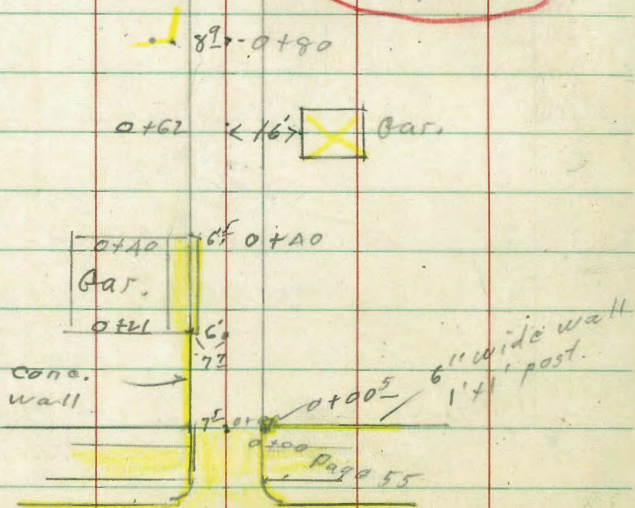 8⁹ 0+80
0+62 <16'> Gar.
0+40 6⁵ 0+40
Gar.
0+21 6'
7⁷
conc.
wall
6" wide wall
1'+1' post.
0+00⁵
7⁵
0+00
Page 55